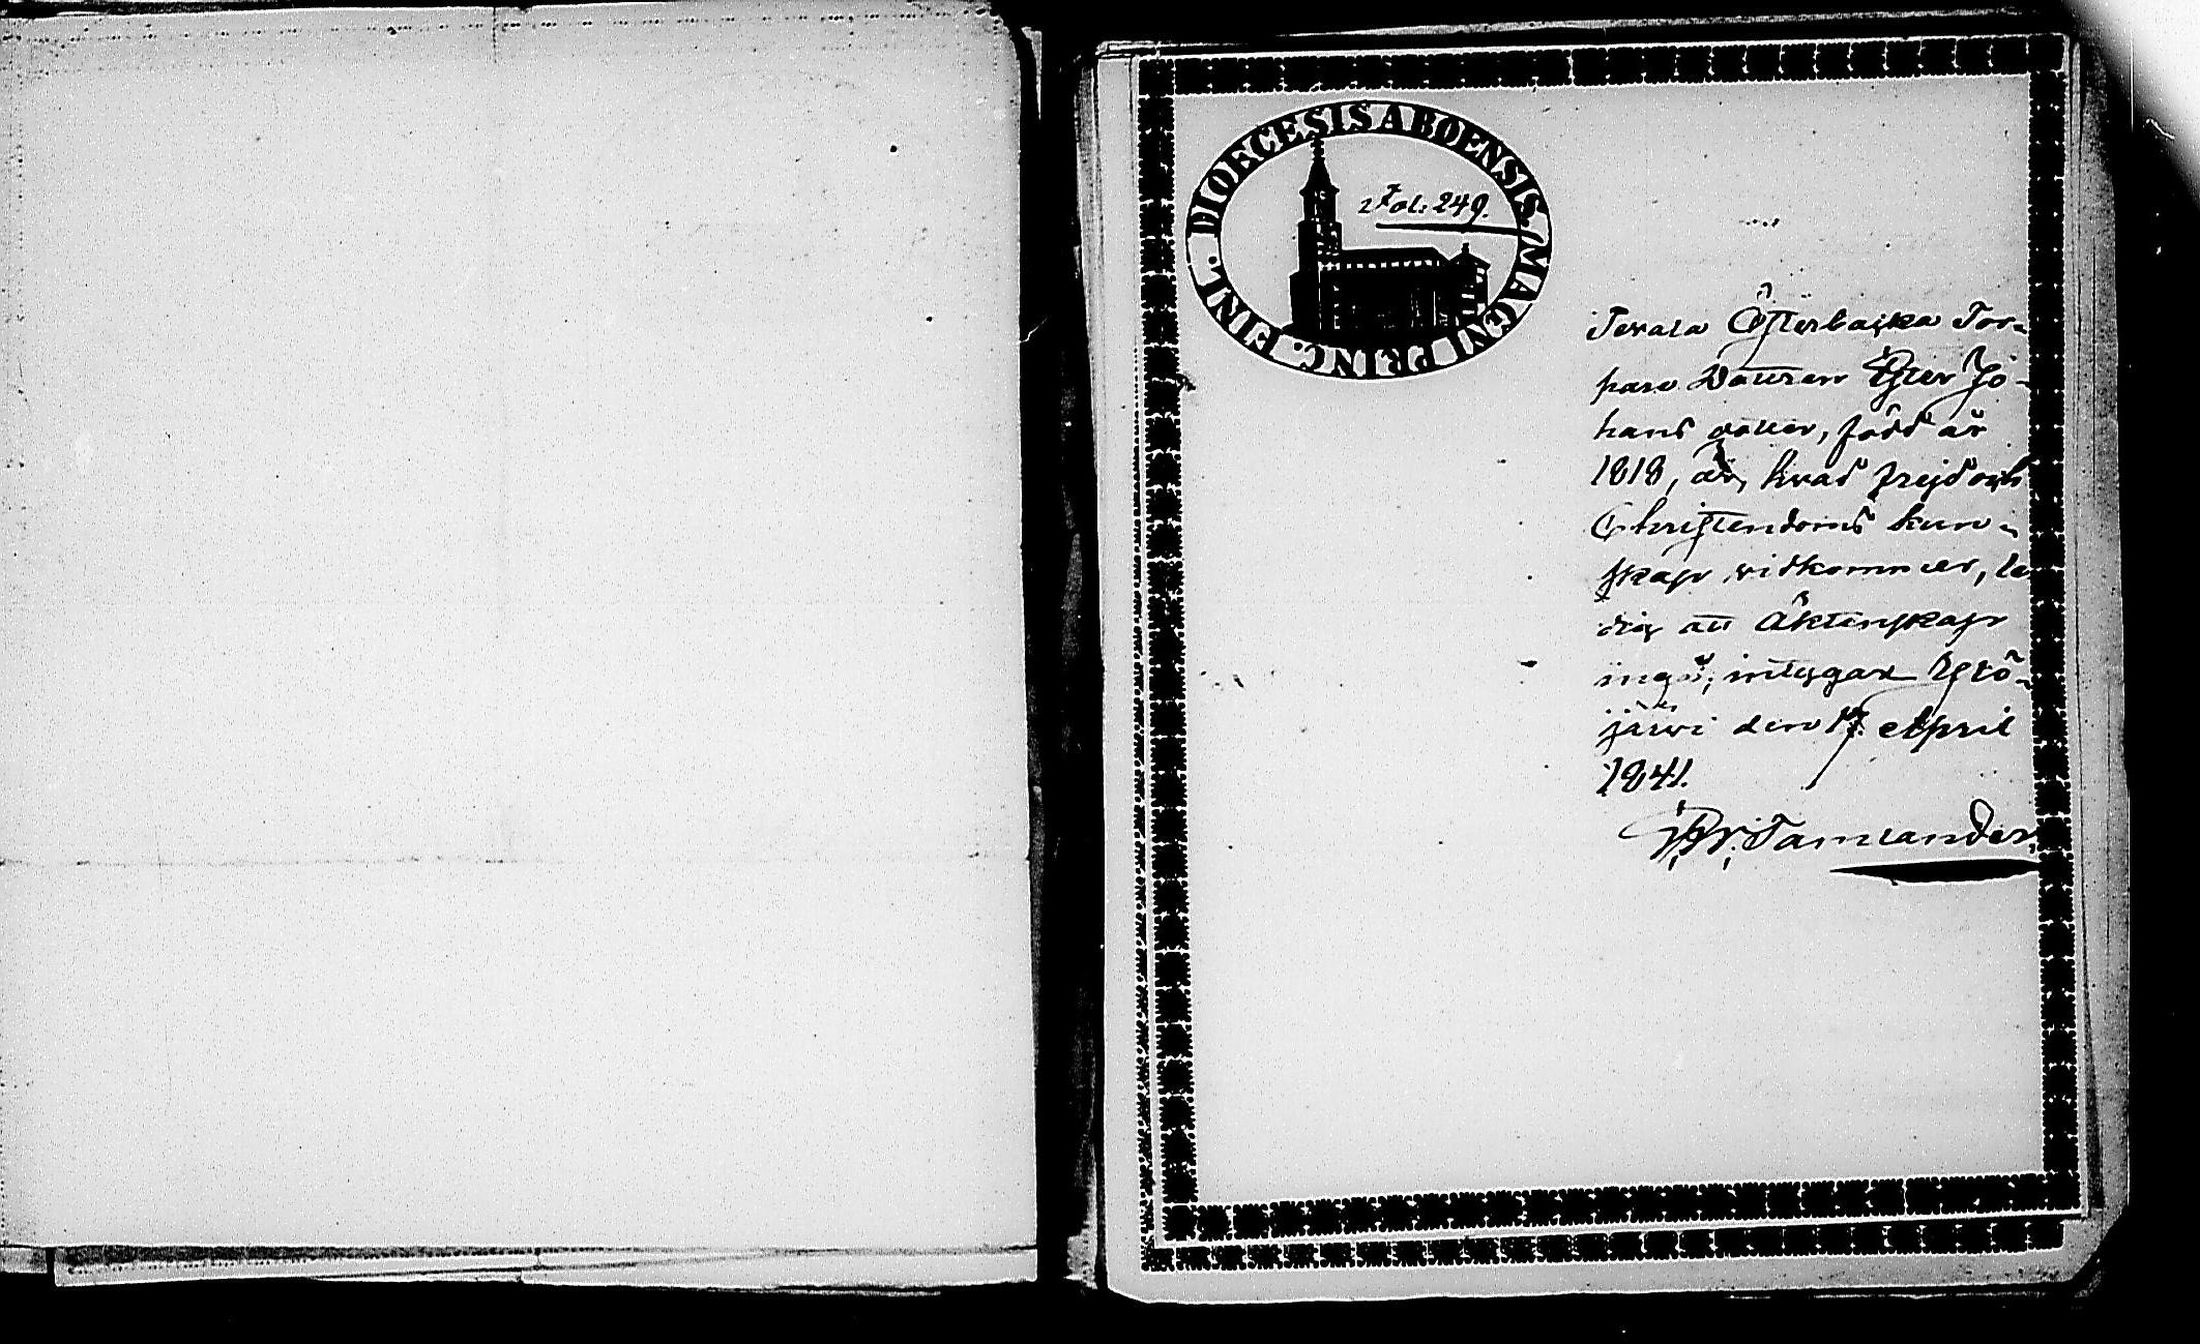 DIOECESIS ABOENSIS. MAGNI PRINC. FINL.
Fol: 249.
Österbacka Tor-
pare Dottren Jo-
hans dotter, född år
1818, är, hvad frejd och
Christendoms kun-
skap vidkommer, le
dig att Äktenskap
ingå; intygar
järvi den 17 April
1841.
Tamlander.